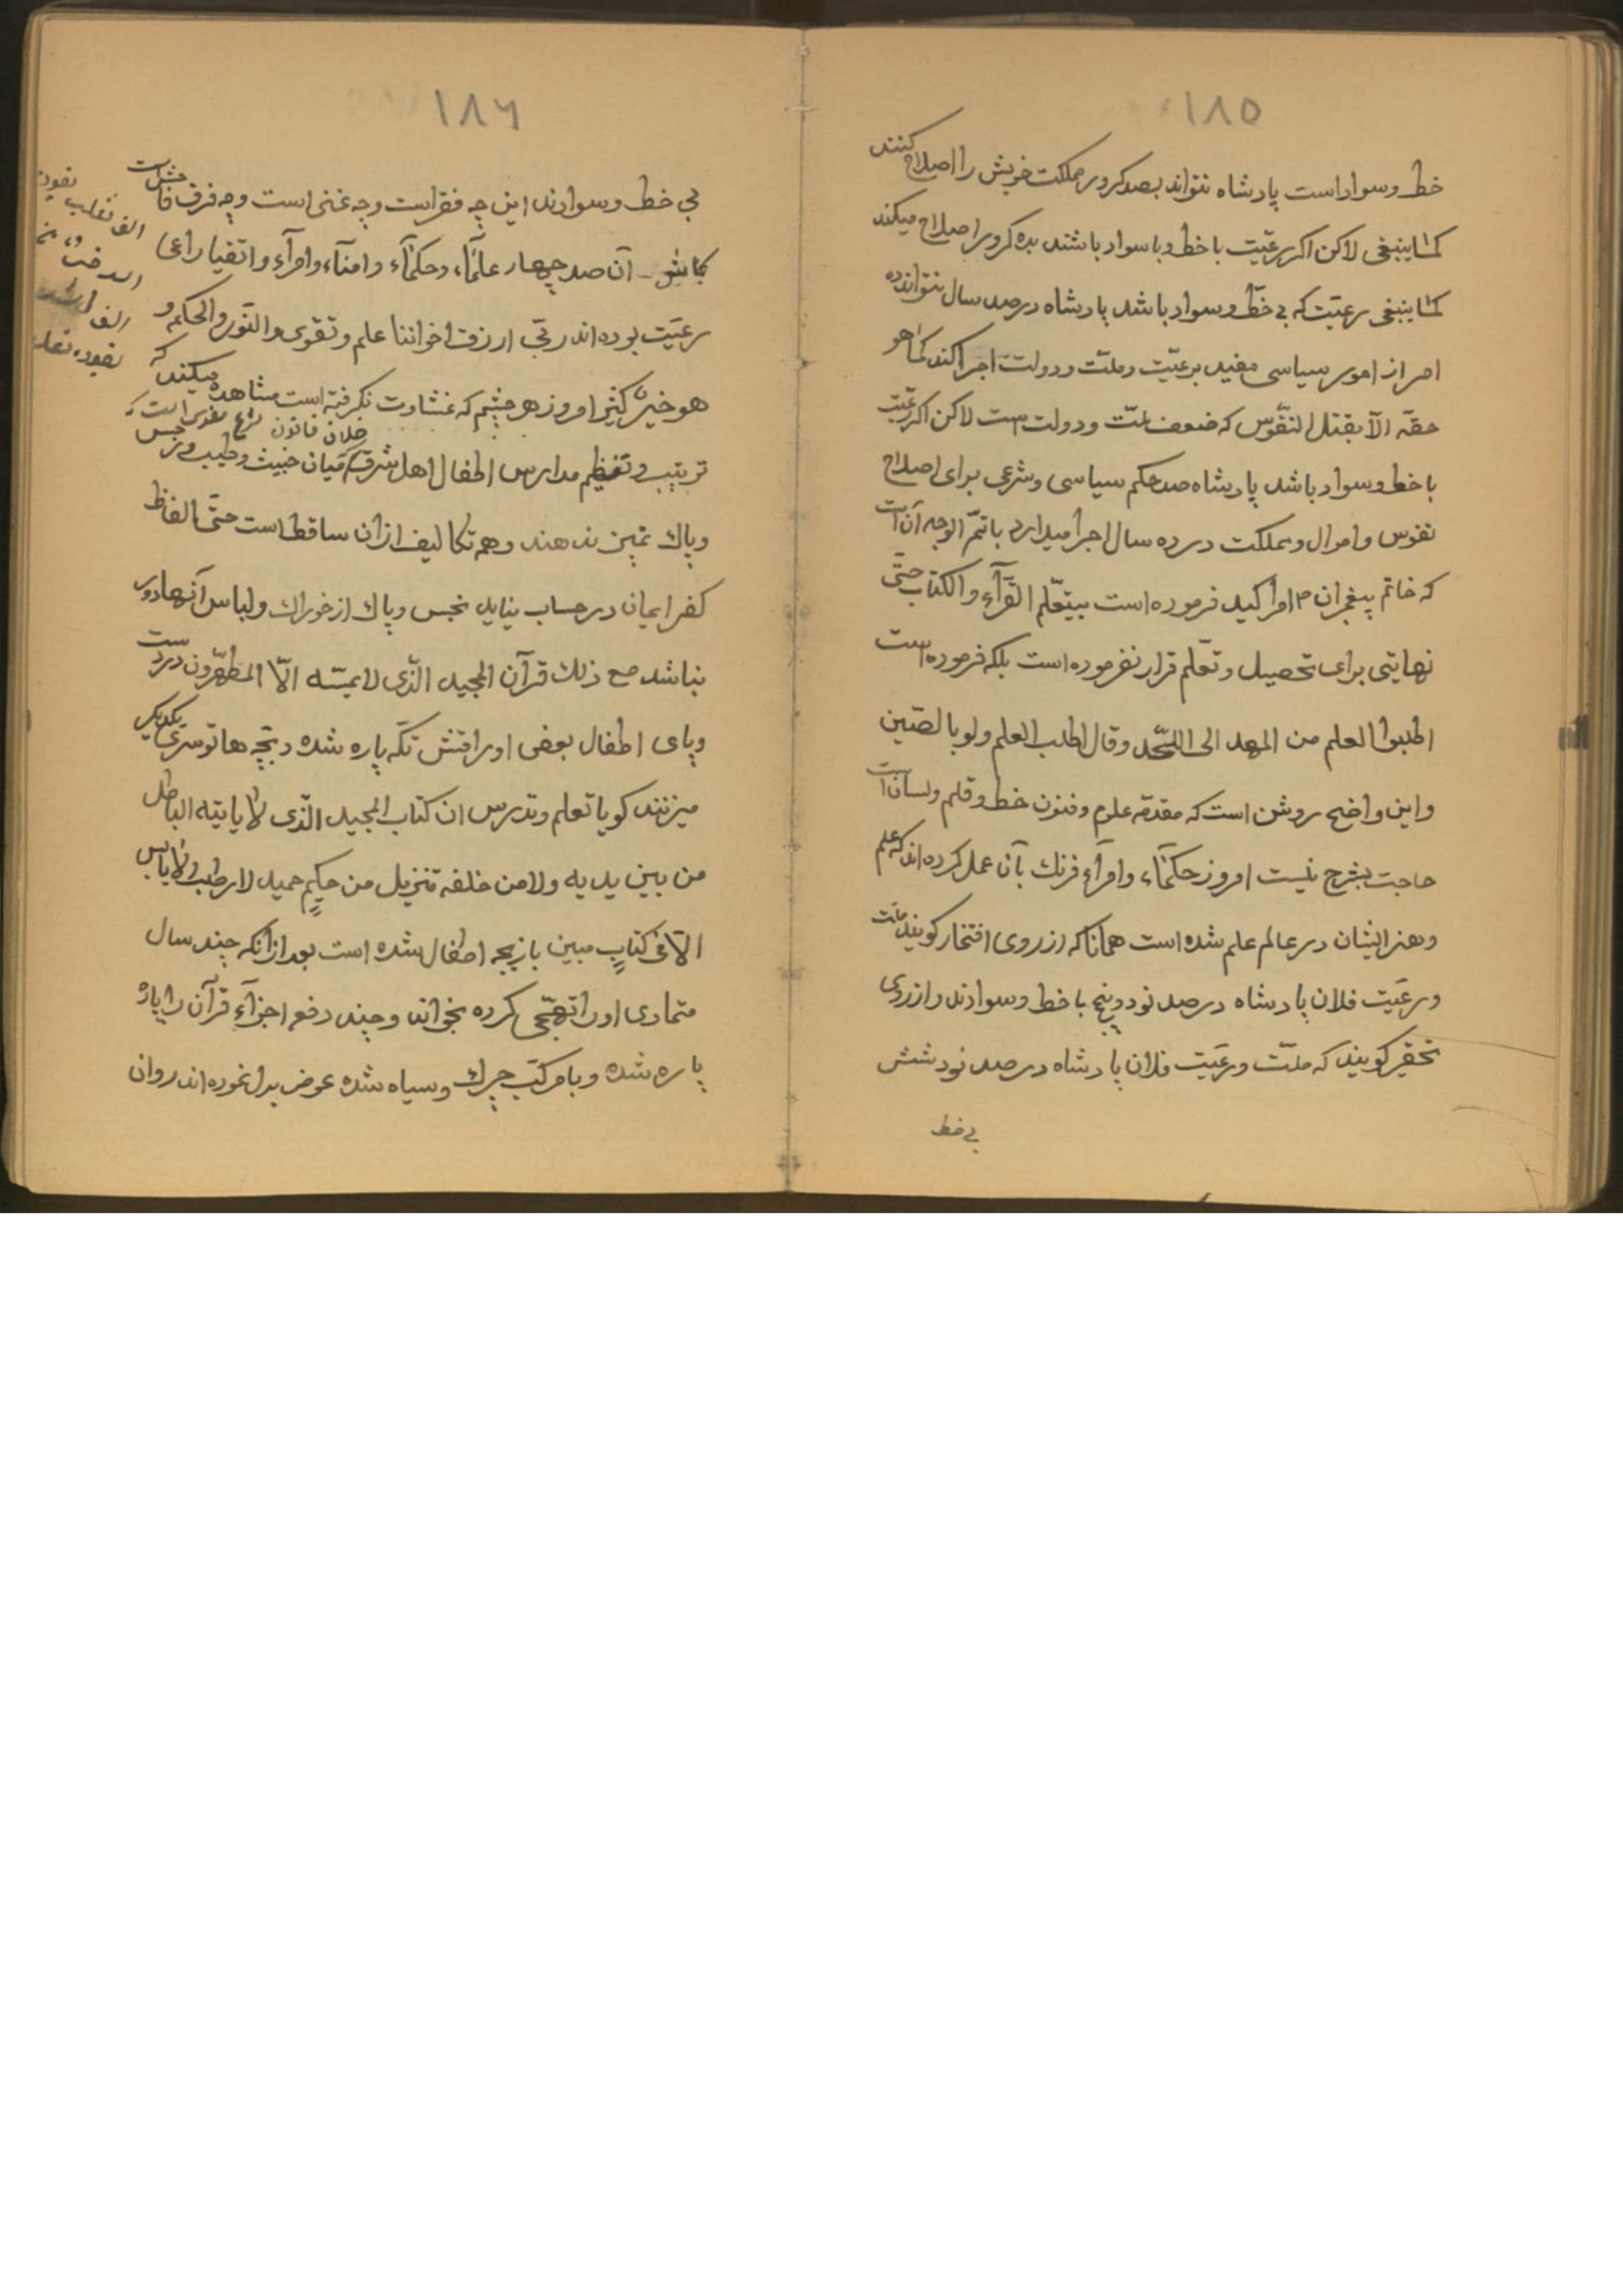 ١٨٥
خط و سواد است پادشاه نتواند بصد کرور مملکت خویش را اصلاح کنند
کما ینبغی لاکن اکر رعیّت با خط و با سواد باشند بده کرور اصلاح میکند
کما ینبغی رعیّت که بی خطّ و سواد باشد پادشاه در صد سال نتوانده
امر از امور سیاسی مفید برعیّت و ملّت و دولت اجرا کند کما هو
حقّه الّا بقتل النفوس که ضعف ملّت و دولت است لاکن اکر رعیّت
با خط و سواد باشد پادشاه صد حکم سیاسی و شرعی برای اصلاح
نفوس و اموال و مملکت در ده سال اجرا میدارد باتمّ الوجه آن است
که خاتم پیغمبران ص امر اکید فرموده است بتعلّم القرآء و الکتاب حتّی
نهایتی برای تحصیل و تعلّم قرار نفرموده است بلکه فرموده است
اطلبوا العلم من المهد الی اللّحد وقال اطلب العلم ولو بالصّین
و این واضح روشن است که مقدّمه علوم و فنون خط و قلم و لسان است
حاجت بشرح نیست امروز حکمآء و امرآء فرنك بآن عمل کرده اند که علم
و هنر ایشان در عالم علم شده است همانا که از روی افتخار کویند ملّت
و رعیّت فلان پادشاه در صد نود و پنج با خط و سوادند و از روی
تحقیر کویند که ملّت و رعیّت فلان پادشاه در صد نود شش
بی خط
١٨٦
بی خط و سوادند این چه فقر است و چه غنی است و چه فرق فاحش است
آن صد چهار علمآء و حکمآء و امنآء و امرآء و اتقیا راعی
رعیّت بوده اند ربّی ارزق اخواننا علم و تقوی و النور و الحکم و
هو خیرًا کثیرا امروز هر چشم که غشاوت نکرفته است مشاهده میکند که
خلاف قانون شرع
تربیت و تنظیم مدارس اطفال اهل شرق میان خبیث و طیب و نجس
و پاك تمیز ندهند و هم تکالیف از آن ساقط است حتّی الفاظ
کفر ایمان در حساب نیاید نجس و پاك از خوراك و لباس آنها دور
نباشد مع ذلك قرآن المجید الّذی لا یمسّه الّا المطهّرون در دست
و پای اطفال بعضی اوراقش تکّه پاره شده و بچّه ها تو سری یکدیکر
میزنند کویا تعلم و تدرس ان کتاب المجید الّذی لا یاتیه الباطل
من بین یدیه ولا من خلفه تنزیل من حکیمٍ حمید لا رطب ولا یابس
الّا فی کتابٍ مبین بازیچه اطفال شده است بعد از آنکه چند سال
متمادی او را تهجّی کرده بخواند و چند دفعه اجزآء قرآن را پاره
پاره شده و با مرکّب چرك و سیاه شده عوض بدل نموده اند روان